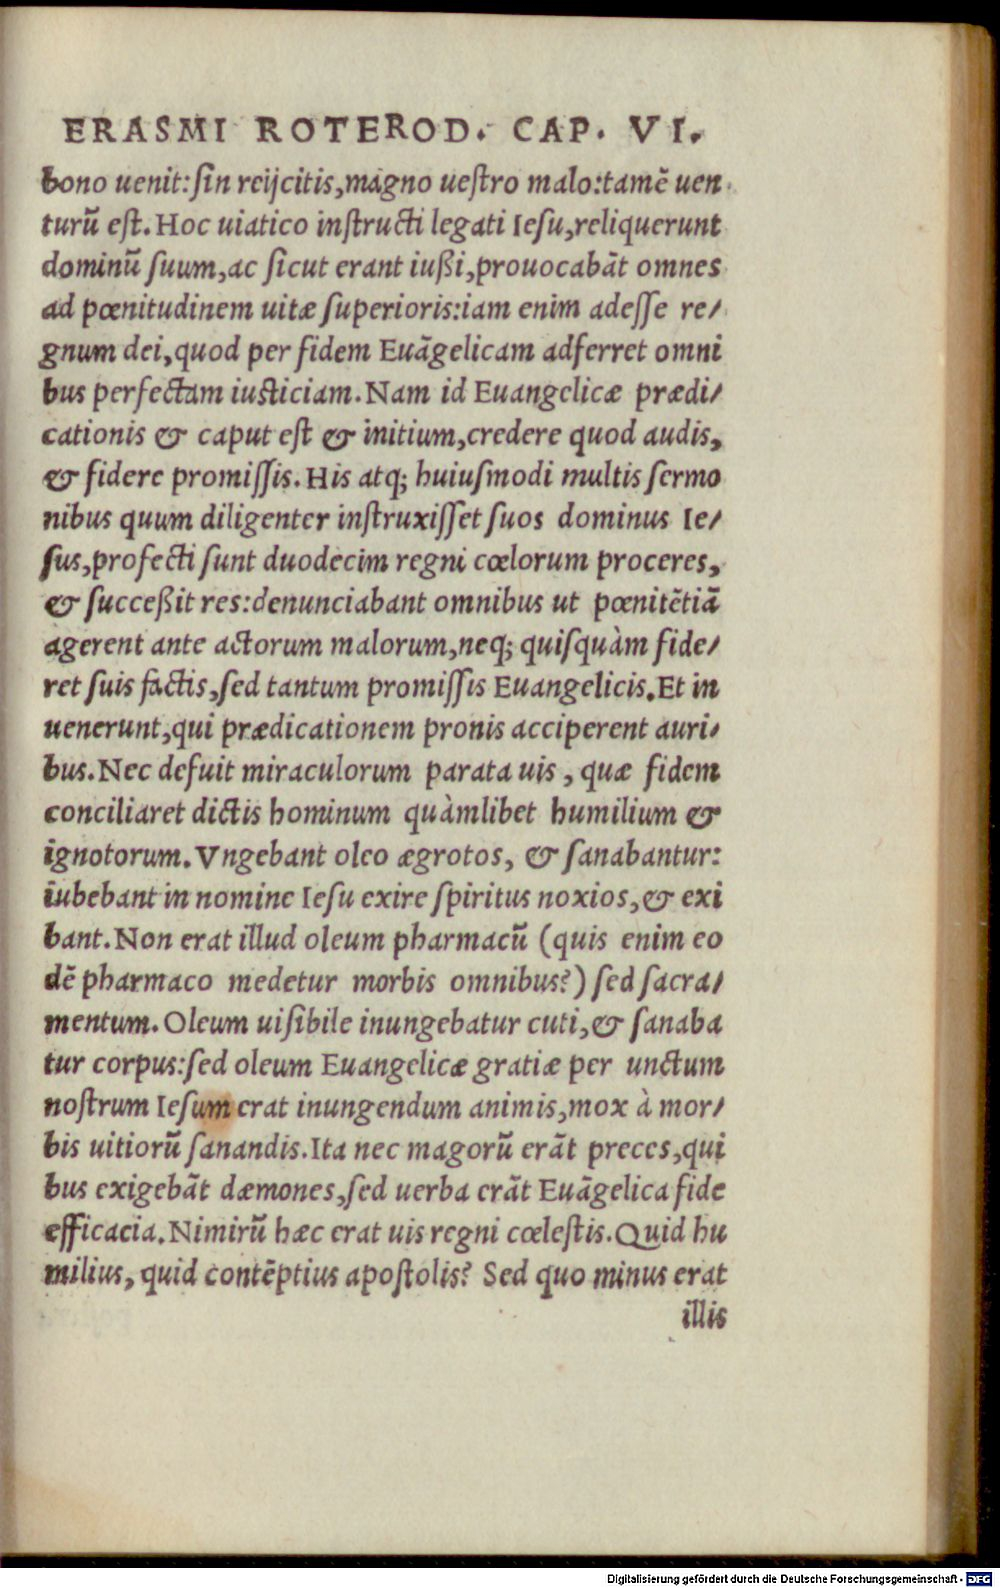 ERASMI ROTEROD. CAP. VI.
bono uenit: ſin reijcitis, magno ueſtro malo: tamẽ uen
turũ eſt. Hoc uiatico inſtructi legati Ieſu, reliquerunt
dominũ ſuum, ac ſicut erant iußi, prouocabãt omnes
ad pœnitudinem uitæ ſuperioris: iam enim adeſſe re/
gnum dei, quod per fidem Euãgelicam adferret omni
bus perfectam iusticiam. Nam id Euangelicæ prædi/
cationis & caput eſt & initium, credere quod audis,
& fidere promiſſis. His atq; huiuſmodi multis ſermo
nibus quum diligenter inſtruxiſſet ſuos dominus Ie/
ſus, profecti ſunt duodecim regni cœlorum proceres,
& ſucceßit res: denunciabant omnibus ut pœnitẽtiã
agerent ante actorum malorum, neq; quiſquàm fide/
ret ſuis factis, ſed tantum promiſſis Euangelicis. Et in
uenerunt, qui prædicationem pronis acciperent auri/
bus. Nec defuit miraculorum parata uis, quæ fidem
conciliaret dictis hominum quàmlibet humilium &
ignotorum. Vngebant oleo ægrotos, & ſanabantur:
iubebant in nomine Ieſu exire ſpiritus noxios, & exi
bant. Non erat illud oleum pharmacũ (quis enim eo
dẽ pharmaco medetur morbis omnibus?) ſed ſacra/
mentum. Oleum uiſibile inungebatur cuti, & ſanaba
tur corpus: ſed oleum Euangelicæ gratiæ per unctum
noſtrum Ieſum erat inungendum animis, mox à mor/
bis uitiorũ ſanandis. Ita nec magorũ erãt preces, qui
bus exigebãt dæmones, ſed uerba erãt Euãgelica fide
efficacia. Nimirũ hæc erat uis regni cœleſtis. Quid hu
milius, quid contẽptius apoſtolis? Sed quo minus erat
illis
Digitalisierung gefördert durch die Deutsche Forschungsgemeinschaft - DFG